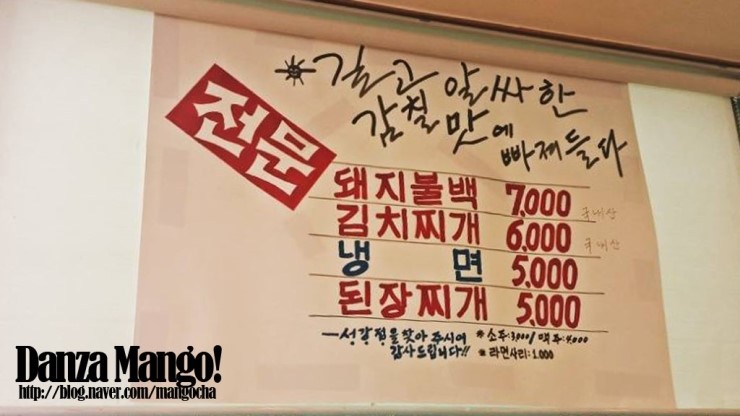 *깊고 알싸한
감칠맛에
빠져들다
전문
돼지불백 7,000 국내산
김치찌개 6,000 국내산
냉면 5,000
된장찌개 5,000
-서강점을 찾아 주시어
감사드립니다!!
*소주:3,000/맥주:4,000
*라면사리:1,000
Danza Mango!
http://blog.naver.com/mangocha